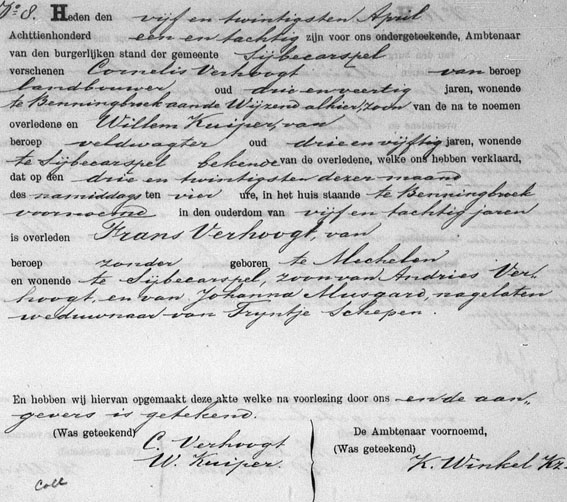 No 8. Heden den vijf en twintigsten April
Achttienhonderd een en tachtig zijn voor ons ondergeteekende, Ambtenaar
van den burgerlijken stand der gemeente Sijbecarspel
verschenen Cornelis Verhoogt van beroep
landbouwer oud drie en veertig jaren, wonende
te Benningbroek aan de Wijzend alhier, zoon van de na te noemen
overledene en Willem Kuiper, van
beroep veldwagter oud drie en vijftig jaren, wonende
te Sijbecarspel bekende van de overledene, welke ons hebben verklaard,
dat op den drie en twintigsten dezer maand
des namiddags ten vier ure, in het huis staande te Benningbroek
voornoemd in den ouderdom van vijf en tachtig jaren
is overleden Frans Verhoogt, van
beroep zonder geboren te Mechelen
en wonende te Sijbecarspel, zoon van Andries Ver-
hoogt, en van Johanna Musgard, nagelaten
weduwnaar van Tryntje Schepen.
En hebben wij hiervan opgemaakt deze akte welke na voorlezing door ons en de aan-
gevers is getekend.
(Was geteekend)
C. Verhoogt
W. Kuiper.
De Ambtenaar voornoemd,
(Was geteekend)
K. Winkel Kz.
Coll